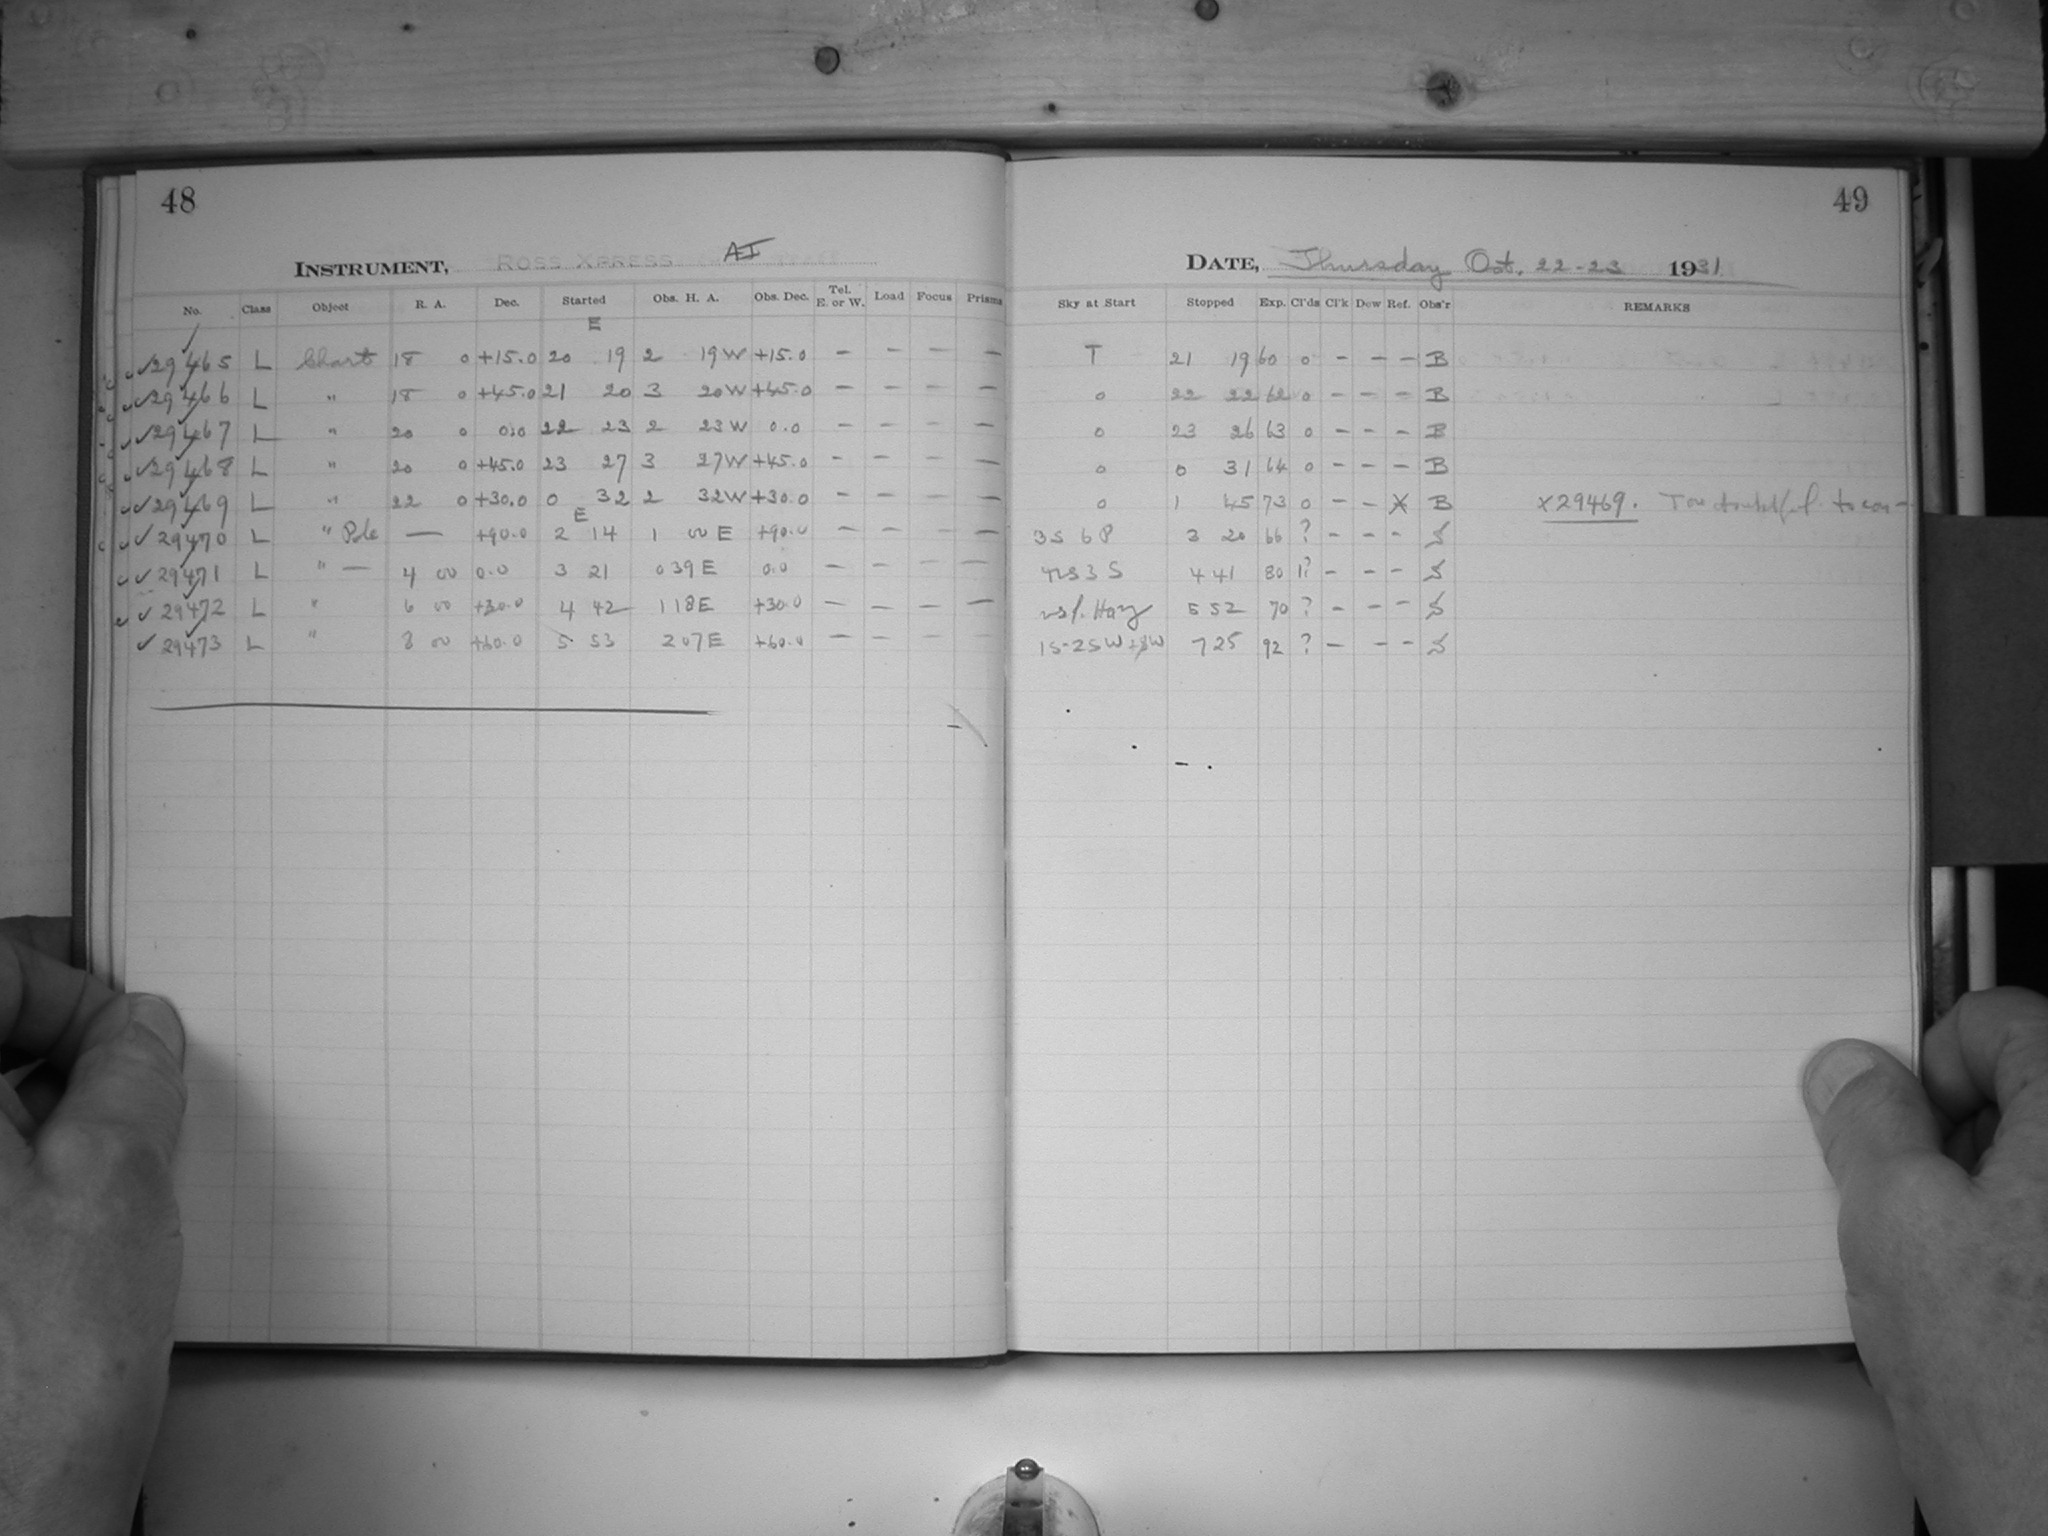 48
INSTRUMENT, ROSS XPRESS AI
No. Class Object R. A. Dec. Started Obs. H. A. Obs. Dec. Tel. E. or W. Load Focus Prisms
E
29465 L Chart 18 0 +15.0 20 19 2 19W +15.0 - - - -
29466 L " 18 0 +45.0 21 20 3 20W +45.0 - - - -
29467 L " 20 0 0.0 22 23 2 23W 0.0 - - - -
29468 L " 20 0 +45.0 23 27 3 27W +45.0 - - - -
29469 L " 22 0 +30.0 0 32 2 32W +30.0 - - - -
E
29470 L " Pole — +90.0 2 14 1 00 E +90.0 - - - -
29471 L " — 4 00 0.0 3 21 0 39 E 0.0 - - - -
29472 L " 6 00 +30.0 4 42 1 18E +30.0 - - - -
29473 L " 8 00 +60.0 5 53 2 07E +60.0 - - - -
49
DATE, Thursday Oct. 22-23 1931
Sky at Start Stopped Exp. Cl'ds Cl'k Dew Ref. Obs'r REMARKS
T 21 19 60 0 - - - B
0 22 22 62 0 - - - B
0 23 26 63 0 - - - B
0 0 31 64 0 - - - B
0 1 45 73 0 - - X B X29469. Too doubtful to
3S 6P 3 20 66 ? - - - S
3 S 4 41 80 1? - - - S
Hazy 5 52 70 ? - - - S
1S-2SW 7 25 92 ? - - - S